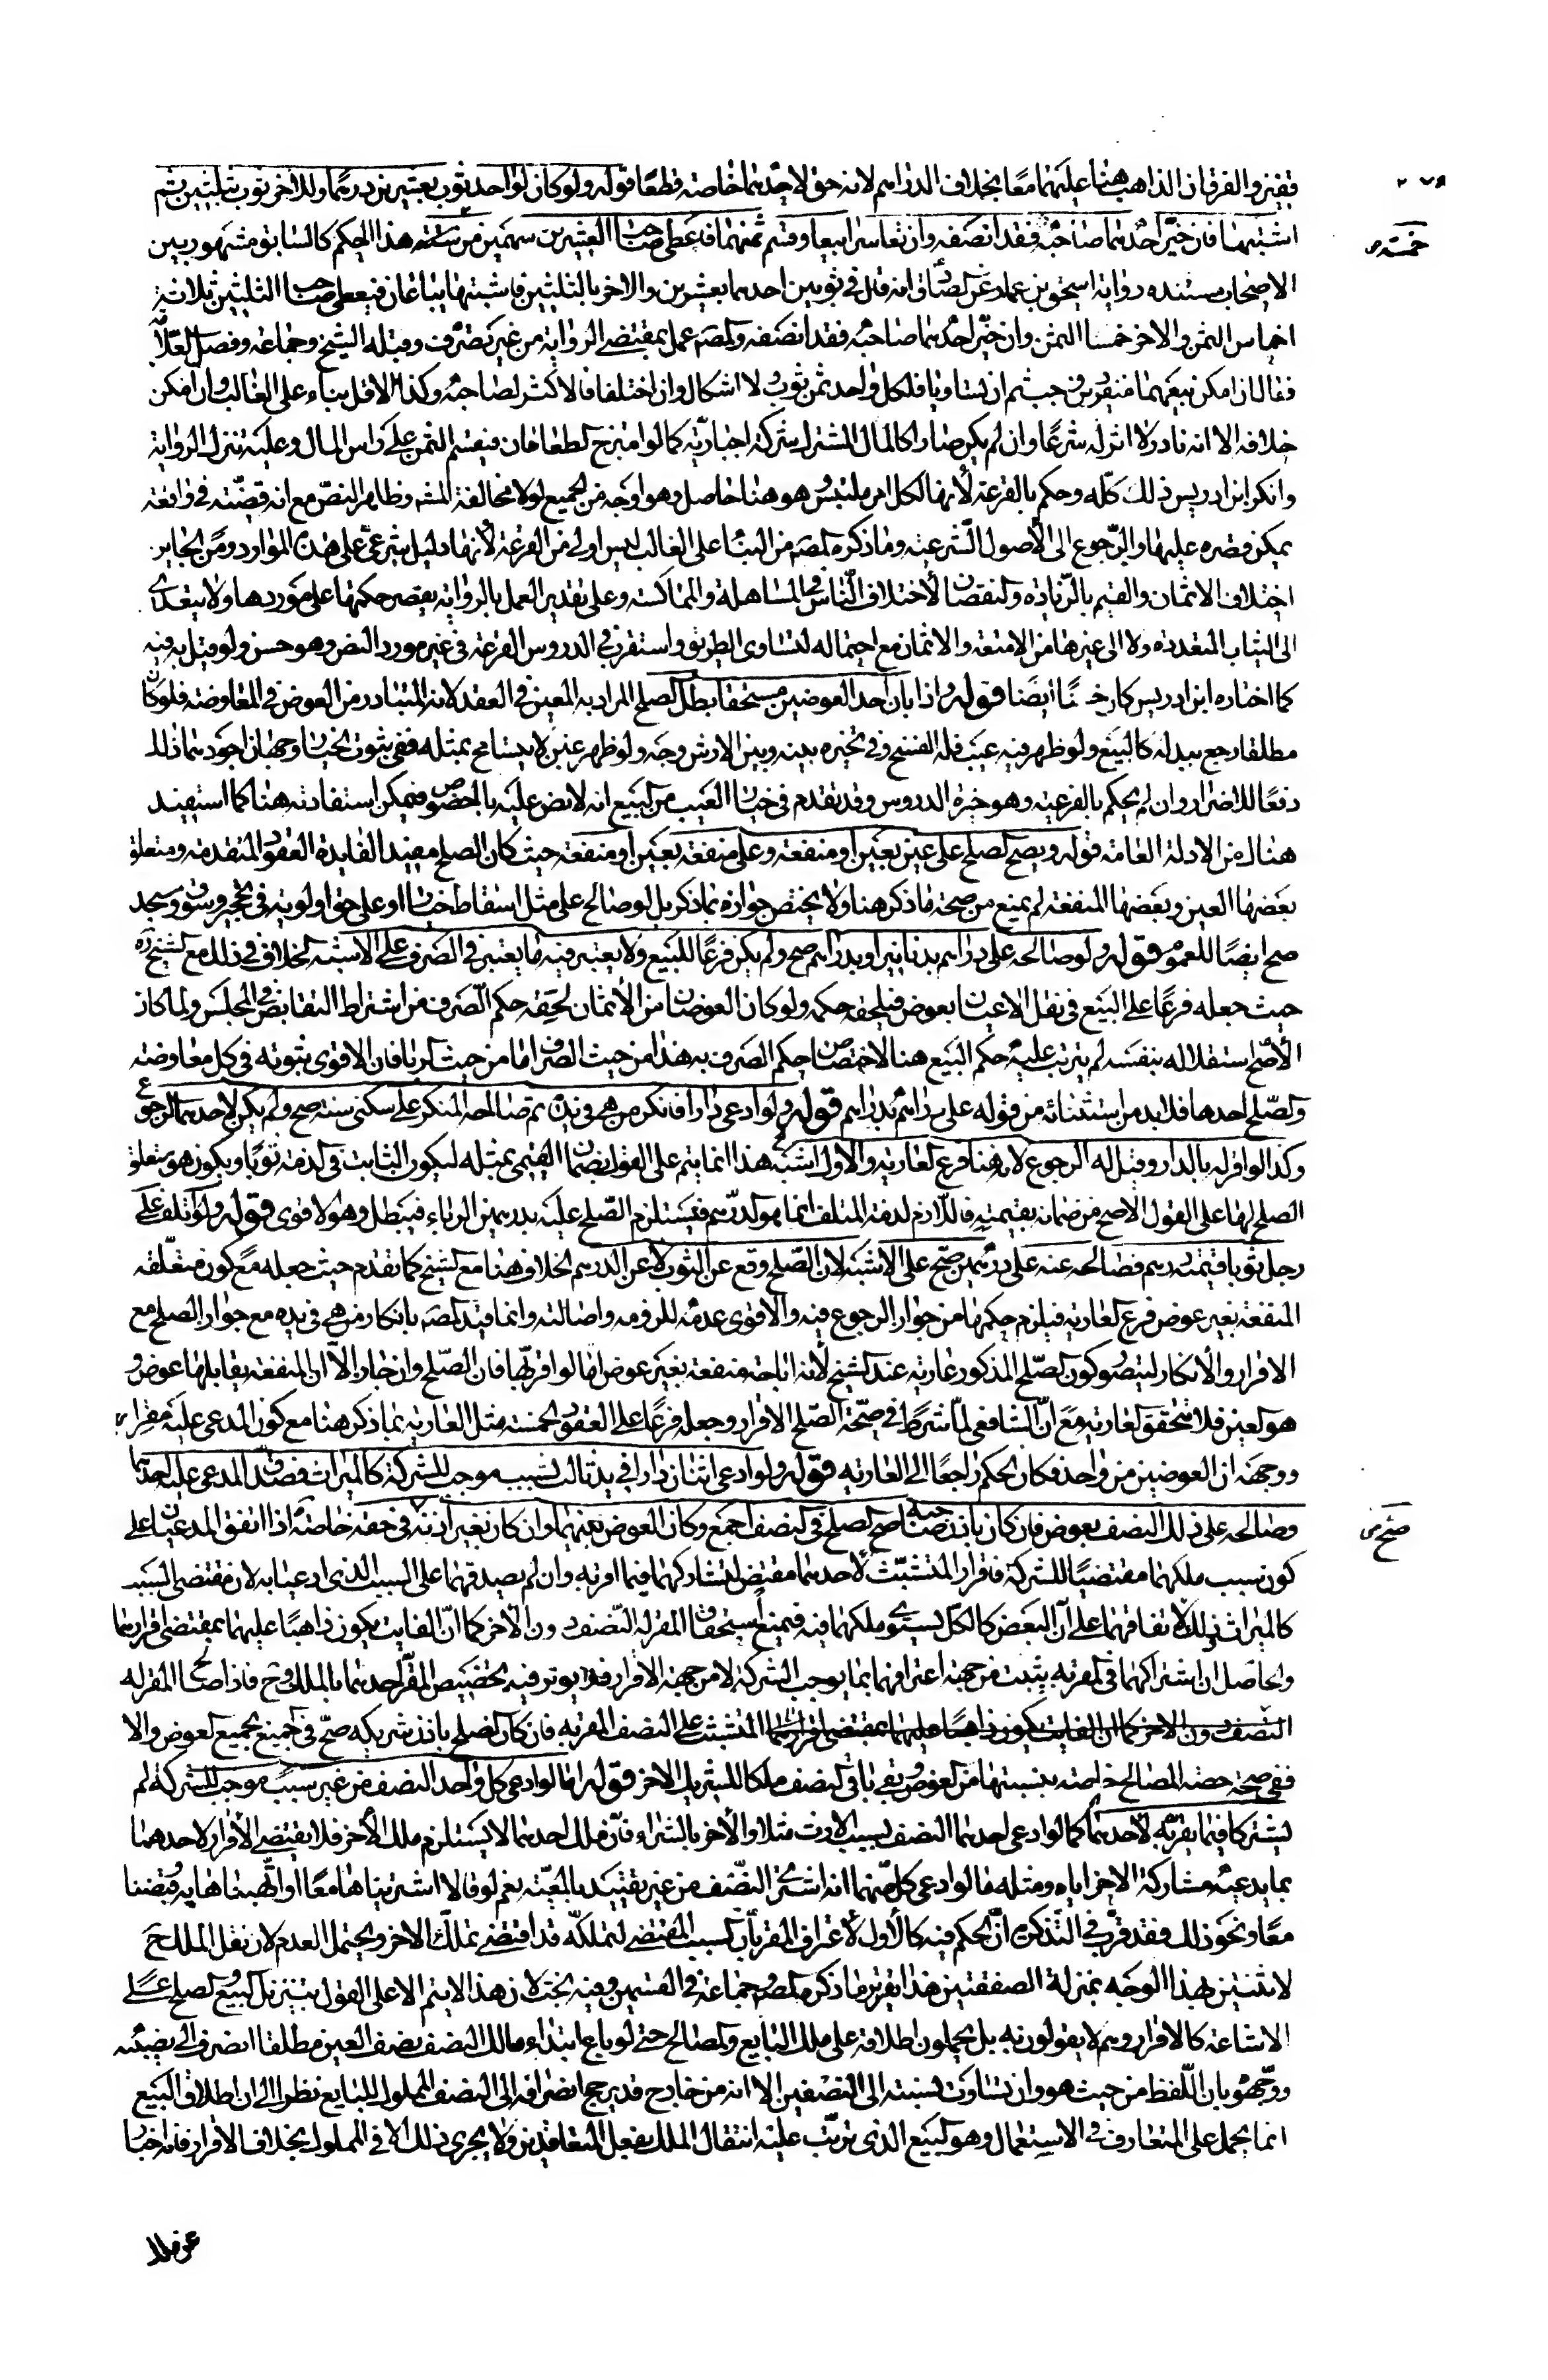 قفيز والفرق ان الذاهب هنا عليهما معا بخلاف الدراهم لانه حق لاحدهما خاصة قطعا قوله ولو كان لواحد ثوب بعشرين درهما وللاخر ثوب بثلثين ثم
اشتبها فان خير احدهما صاحبه فقد انصفه وان تعاسرا بيعا وقسم ثمنهما فاعطى صاحب العشرين سهمين من هذا الحكم كالسابق مشهور بين
خمسة
الاصحاب مستنده رواية اسحق بن عمار عن الصادق انه قال في ثوبين احدهما بعشرين والاخر بالثلثين فاشتبها يباعان فيعطى صاحب الثلثين ثلاثة
اخماس الثمن والاخر خمسا الثمن وان خير احدهما صاحبه فقد انصفه والمصـ عمل بمقتضى الرواية من غير تصرف وقبله الشيخ وجماعة وفصل العلامة
فقال ان امكن بيعهما منفردين وجب ثم ان تساويا فلكل واحد ثمن ثوب ولا اشكال وان اختلفا فالاكثر لصاحبه وكذا الاقل بناء على الغالب وان امكن
خلافه الا انه نادر لا اثر له شرعا وان لم يمكن صارا كالمال المشترك شركة اجبارية كما لو امتزج الطعامان فيقسم الثمن على راس المال وعليه تنزل الرواية
وانكر ابن ادريس ذلك كله وحكم بالقرعة لانها لكل امر ملتبس وهو هنا حاصل وهو اوجه من الجميع لولا مخالفة المشه وظاهر النص مع انه قضية في واقعة
يمكن قصره عليها والرجوع الى الاصول الشرعية وما ذكره المصـ من البناء على الغالب ليس اولى من القرعة لانها دليل شرعي على هذه الموارد ومن الجايز
اختلاف الاثمان والقيم بالزيادة والنقصان لاختلاف الناس في المساهلة والمماكسة وعلى تقدير العمل بالرواية يقصر حكمها على موردها ولا يتعدى
الى الثياب المتعددة ولا الى غيرها من الامتعة والاثمان مع احتماله لتساوي الطريق واستقرب في الدروس القرعة في غير مورد النص وهو حسن ولو قيل به فيه
كما اختاره ابن ادريس كان حسنا ايضا قوله واذا بان احد العوضين مستحقا بطل الصلح المراد به المعين في العقد لانه المتبادر من العوض في المعاوضة فلو كان
مطلقا رجع ببدله كالبيع ولو ظهر فيه عيب فله الفسخ وفي تخيره بينه وبين الارش وجه ولو ظهر غبن لا يتسامح بمثله ففي ثبوت الخيار وجهان اجودهما ذلك
دفعا للاضرار وان لم يحكم بالفرعية وهو خيرة الدروس وقد تقدم في خيار الغيب من البيع انه لا نص عليه بالخصوص فيمكن استفادته هنا كما استفيد
هناك من الادلة العامة قوله ويصح الصلح على عين بعين او منفعة وعلى منفعة بعين او منفعة حيث كان الصلح مفيدا لفايدة العقود المتقدمة ومتعلق
بعضها العين وبعضها المنفعة لم يمنع من صحة ما ذكر هنا ولا يختص جوازه بما ذكر بل لو صالح على مثل اسقاط خيار او على حق اولوية في تحجير وسوق ومسجد
صح ايضا للعموم قوله ولو صالحه على دراهم بدنانير او بدراهم صح ولم يكن فرعا للبيع ولا يعتبر فيه ما يعتبر في الصرف على الاشبه الخلاف في ذلك مع الشيخ ره
حيث جعله فرعا على البيع في نقل الاعيان بعوض فيلحقه حكمه ولو كان العوضان من الاثمان لحقه حكم الصرف من اشتراط التقابض في المجلس ولما كان
الاصح استقلاله بنفسه لم يترتب عليه حكم البيع هنا لاختصاص حكم الصرف به هذا من حيث الصرف اما من حيث الربا فان الاقوى ثبوته في كل معاوضة
والصلح احدها فلا بد من استثنائه من قوله على دراهم بدراهم قوله ولو ادعى دارا فانكر من هي في يده ثم صالحه المنكر على سكنى سنة صح ولم يكن لاحدهما الرجوع
وكذا لو اقر له بالدار وقيل له الرجوع لانه هنا فرع العارية والاول اشبه هذا انما يتم على القول بضمان القيمي بمثله ليكون الثابت في الذمة ثوبا ويكون هو متعلق
الصلح اما على القول الاصح من ضمانه بقيمته فاللازم لذمة المتلف انما هو الدرهم فيستلزم الصلح عليه بدرهمين الرباء فيبطل وهو الاقوى قوله ولو اتلف على
رجل ثوبا قيمته درهم فصالحه عنه على درهمين صح على الاشبه لان الصلح وقع عن الثوب لا عن الدرهم الخلاف هنا مع الشيخ كما تقدم حيث جعله مع كون متعلقه
المنفعة بغير عوض فرع العارية فيلزم حكمها من جواز الرجوع فيه والاقوى عدمه للزومه واصالته وانما قيد المصـ بانكار من هي في يده مع جواز الصلح مع
الاقرار والانكار ليتصور كون الصلح المذكور عارية عند الشيخ لانه اباحة منفعة بغير عوض اما لو اقر بها فان الصلح وان جاز الا ان المنفعة يقابلها عوض و
هو العين فلا تتحقق العارية مع ان الشافعي لما شرط في صحة الصلح الاقرار وجعله فرعا على العقود الخمسة مثل العارية بما ذكر هنا مع كون المدعى عليه مقرا
ووجهه ان العوضين من واحد فكان الحكم راجعا الى العارية قوله ولو ادعى اثنان دارا في يد ثالث بسبب موجب للشركة كالميراث فصدق المدعى عليه احدهما
وصالحه على ذلك النصف بعوض فان كان باذن صاحبه صح الصلح في النصف اجمع وكان العوض بينهما وان كان بغير اذنه في حقه خاصة اذا اتفق المدعيان على
صح
كون سبب ملكهما مقتضيا للشركة فاقرار المتشبث لاحدهما مقتض لتشاركهما فيما اقر به وان لم يصدقهما على السبب الذي ادعيا به لان مقتضى السبب
كالميراث ذلك لاتفاقهما على ان البعض كالكل يستوي ملكهما فيه فيمنع استحقاق المقر له النصف دون الاخر كما ان الفايت يكون ذاهبا عليهما بمقتضى اقرارهما
والحاصل ان اشتراكهما في المقر به يثبت من جهة اعترافهما بما يوجب الشركة لا من جهة الاقرار فلا يوثر فيه تخصيص المقر احدهما بالملك وح فاذا صالح المقر له
النصف دون الاخر كما ان الفايت يكون ذاهبا عليهما بمقتضى اقرارهما المتشبث على النصف المقر به فان كان الصلح باذن شريكه صح في الجميع بجميع العوض والا
ففي صحة حصة المصالح خاصة بنسبتها من العوض ويبقى باقي النصف ملكا للشريك الاخر قوله اما لو ادعى كل واحد النصف من غير سبب موجب للشركة لم
يشتركا فيما يقر به لاحدهما كما لو ادعى احدهما النصف بسبب الارث مثلا والاخر بالشراء فان ملك احدهما لا يستلزم ملك الاخر فلا يقتضي الاقرار لاحدهما
بما يدعيه مشاركة الاخر اياه ومثله ما لو ادعى كل منهما انه اشترى النصف من غير تقييد بالمعية نعم لو قالا اشتريناها معا او اتهبناها وقبضنا
معا ونحو ذلك فقد قرب في التذكرة ان الحكم فيه كالاول لاعتراف المقر بان السبب المقتضي لتملكه قد اقتضى تملك الاخر ويحتمل العدم لان نقل الملك ح
لاثنين بهذا الوجه بمنزلة الصفقتين هذا تقرير ما ذكره المصـ وجماعة في القسمين وفيه بحث لان هذا لا يتم الا على القول بتنزيل البيع والصلح على
الاشاعة كالاقرار وهم لا يقولون به بل يحملون اطلاقه على ملك البايع والمصالح حتى لو باع ابتداء مالك النصف نصف العين مطلقا انصرف الى نصيبه
ووجهوه بان اللفظ من حيث هو وان تساوت نسبته الى النصفين الا انه من خارج قد يرجح انصرافه الى النصف المملوك للبايع نظرا الى ان اطلاق البيع
انما يحمل على المتعارف في الاستعمال وهو البيع الذي يترتب عليه انتقال الملك بفعل المتعاقدين ولا يجري ذلك الا في المملوك بخلاف الاقرار فانه اخبار
عن ملك